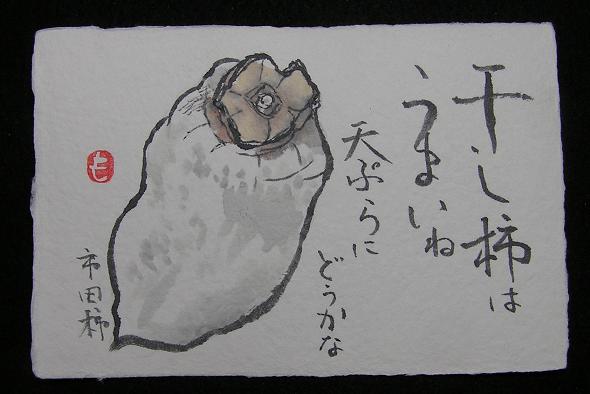 干し柿は
うまいね
天ぷらに
どうかな
市田柿
も